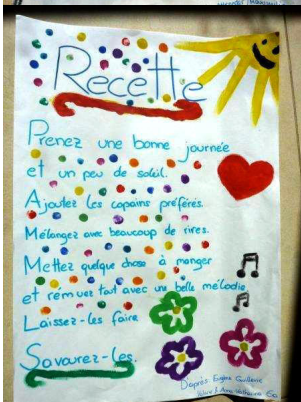 Recette
Prenez une bonne journée
et un peu de soleil.
Ajoutez les copains préférés.
Mélangez avec beaucoup de rires.
Mettez quelque chose à manger
et remuez tout avec une belle mélodie
Laissez-les faire
Savourez-les.
D'après Eugène Guillevic